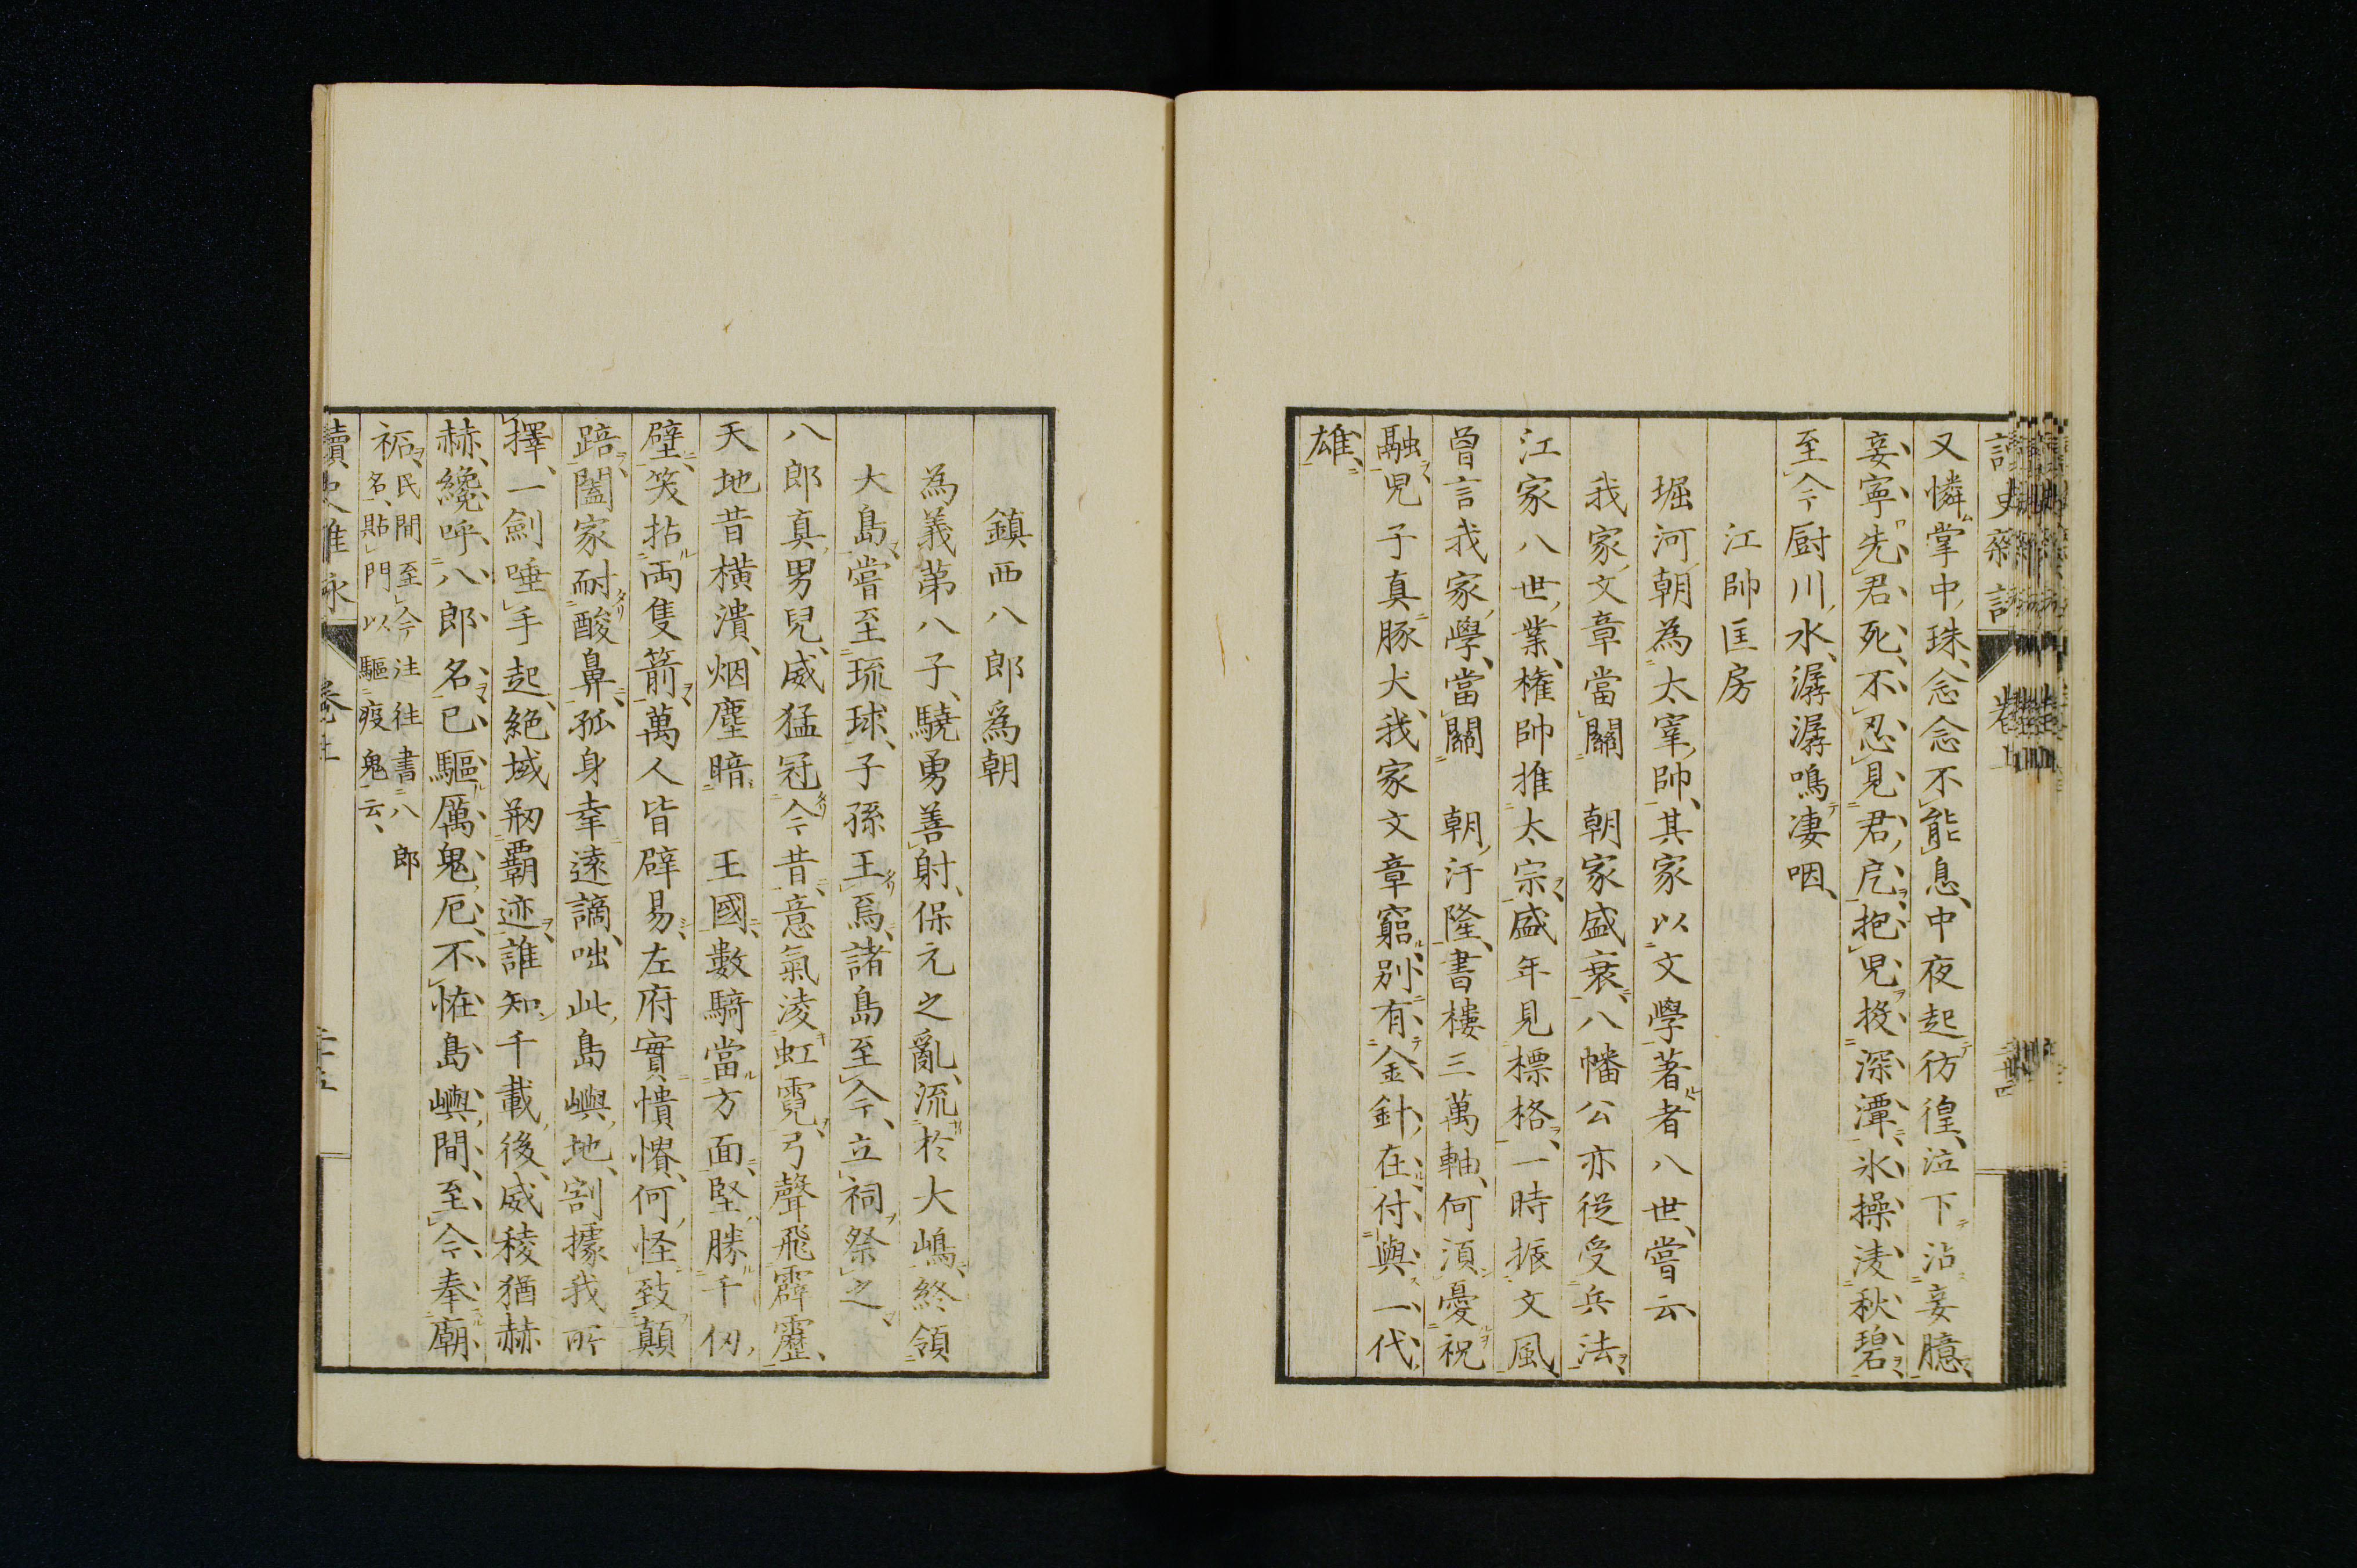 又憐掌中珠念念不能息中夜起彷徨泣下沾妾臆
妾寧先君死不忍見君戹抱児投深潭氷操凌秋碧
至今厨川水潺潺鳴凄咽
江帥匡房
堀河朝為太宰帥其家以文學著者八世嘗云
我家文章當關 朝家盛衰八幡公亦從受兵法
江家八世業権帥推太宗盛年見標格一時振文風
曾言我家學當關 朝汙隆書樓三萬軸何須憂祝
融児子真豚犬我家文章窮別有金針在付與一代
雄
鎮西八郎為朝
為義第八子驍勇善射保元之亂流於大嶋終領
大島嘗至琉球子孫王焉諸島至今立祠祭之
八郎真男兒威猛冠今昔意氣淩虹霓弓聲飛霹靂
天地昔横潰烟塵暗 王國數騎當方面堅勝千仭
壁笑拈両隻箭萬人皆辟易左府實憒憒何怪致顛
踣闔家耐酸鼻孤身幸遠謫咄此島嶼地割據我所
擇一劍唾手起絶域剏覇迹誰知千載後威稜猶赫
赫纔呼八郎名已驅厲鬼厄不恠島嶼間至今奉廟
祏民間至今往往書八郎
名貼門以驅疫鬼云